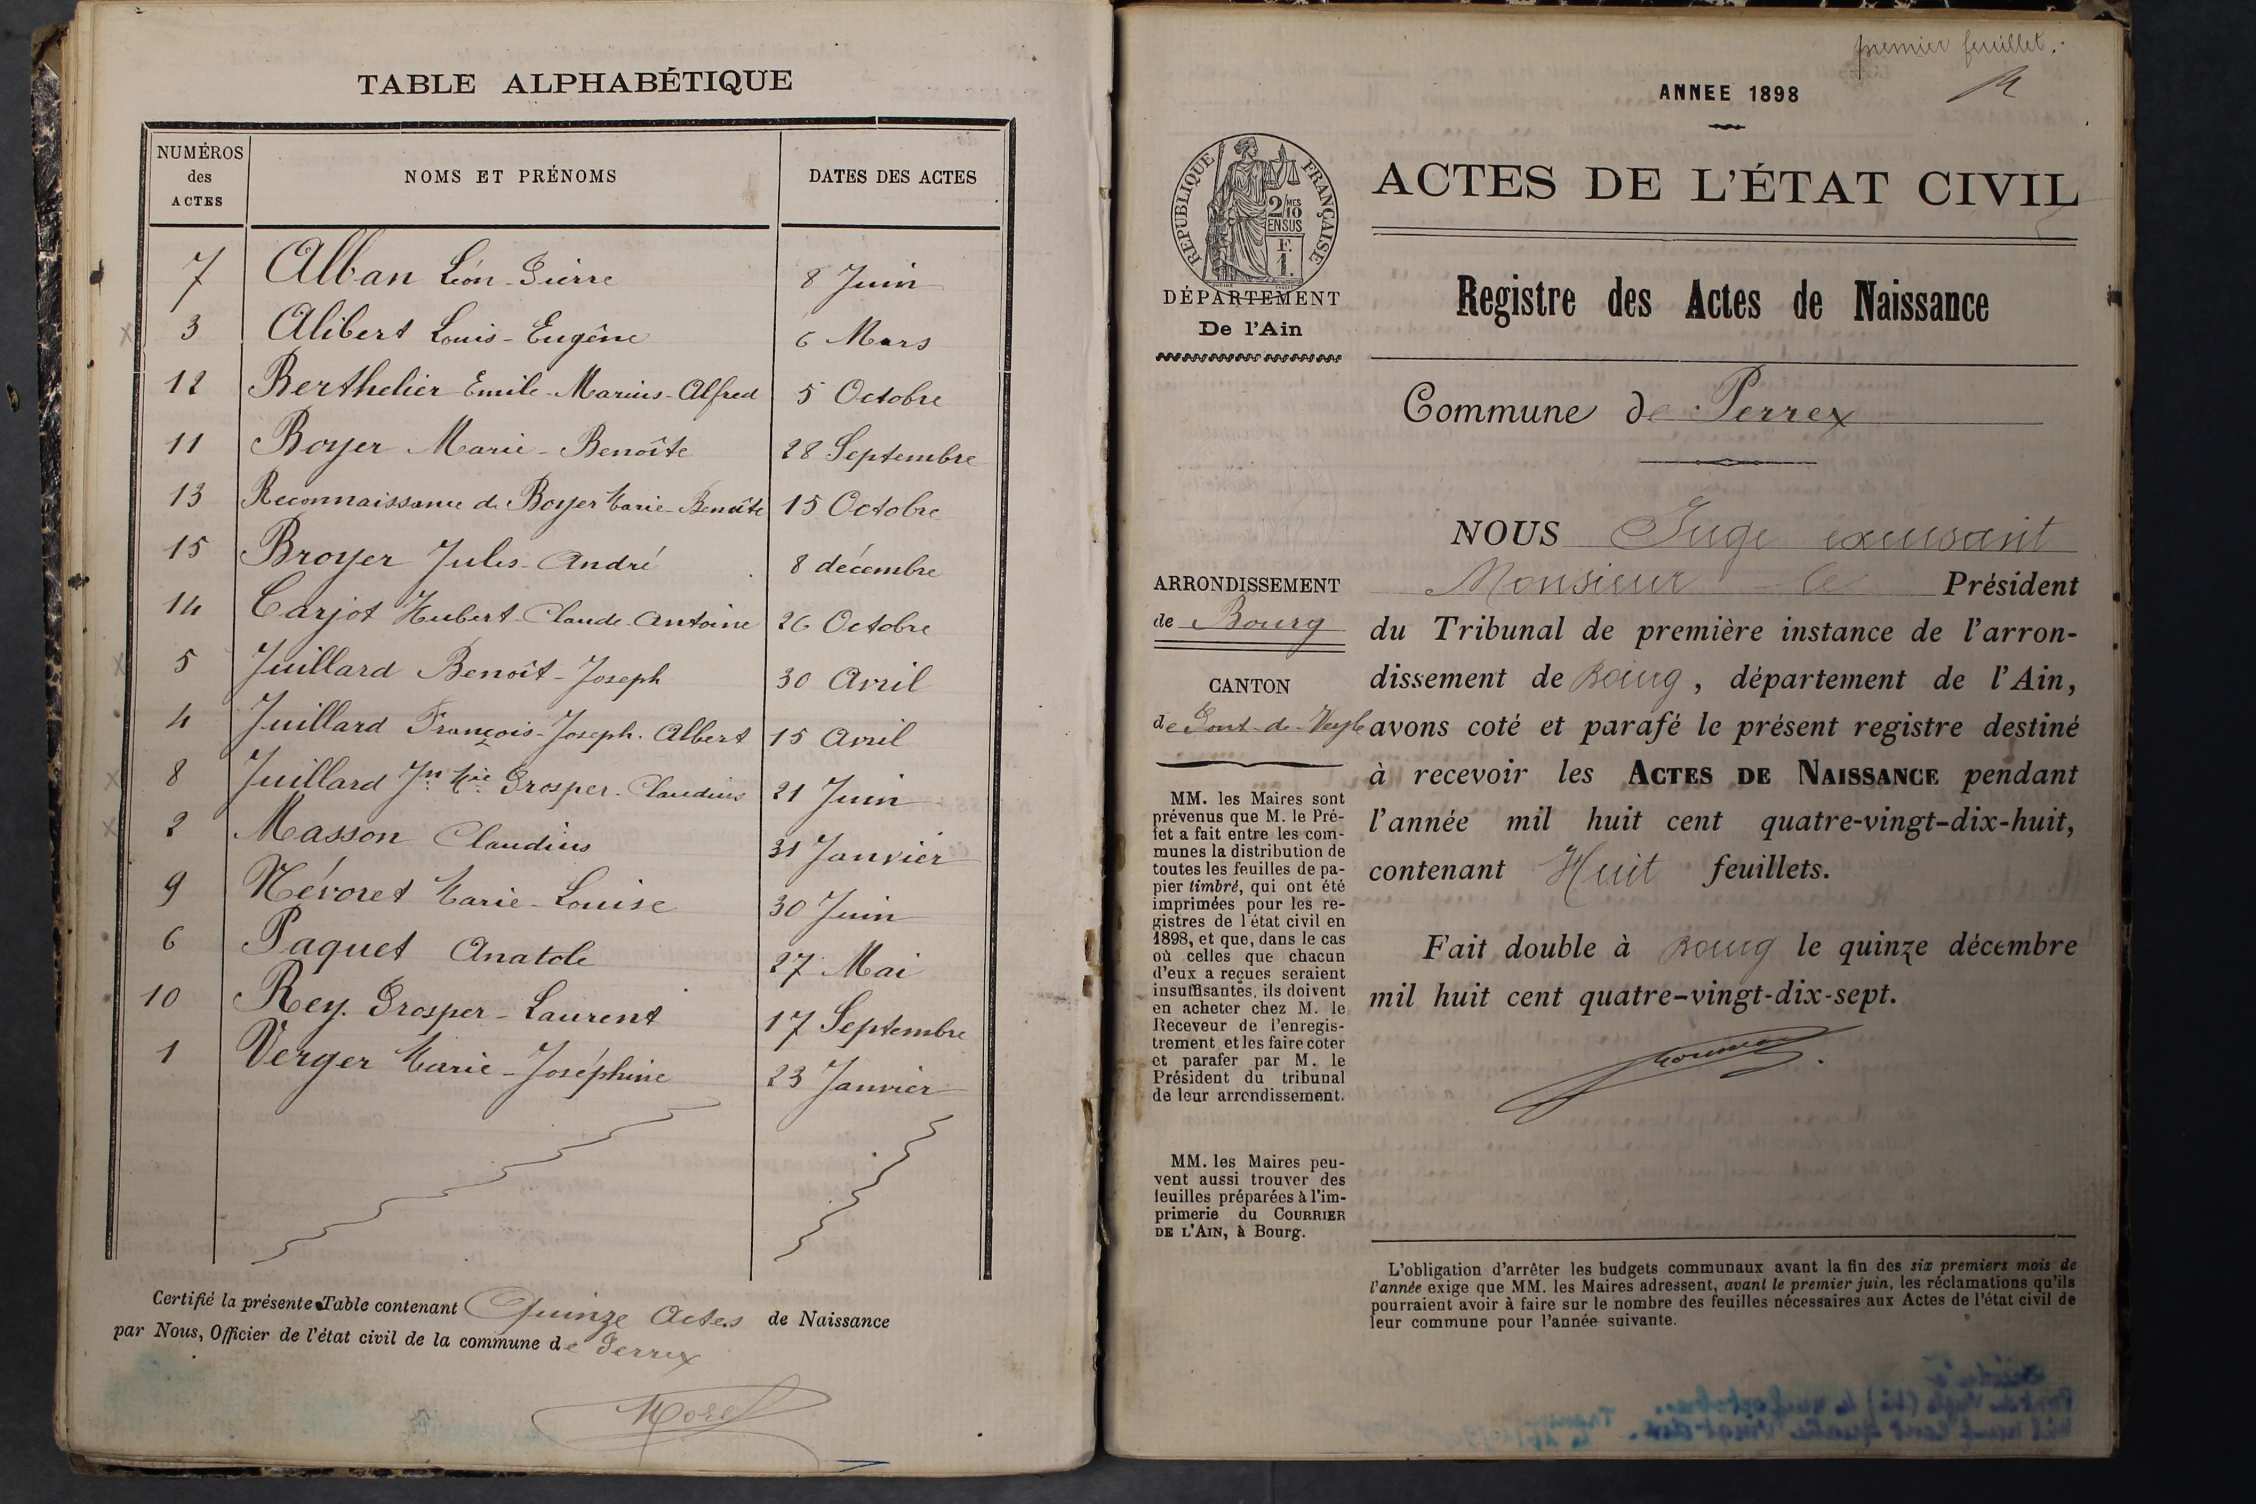 TABLE ALPHABÉTIQUE
NUMÉROS des ACTES NOMS ET PRÉNOMS DATES DES ACTES
7 Alban Léon-Pierre 8 Juin
3 Alibert Louis-Eugène 6 Mars
12 Berthelier Emile-Marius-Alfred 5 Octobre
11 Boyer Marie-Benoîte 28 Septembre
13 Reconnaissance de Boyer Marie-Benoîte 15 Octobre
15 Broyer Jules-André 8 décembre
14 Carjot Hubert-Claude-Antoine 26 Octobre
5 Juillard Benoît-Joseph 30 Avril
4 Juillard François-Joseph-Albert 15 Avril
8 Juillard Jn Mie Prosper-Claudius 21 Juin
2 Masson Claudius 31 Janvier
9 Névoret Marie-Louise 30 Juin
6 Paquet Anatole 27 Mai
10 Rey Prosper-Laurent 17 Septembre
1 Verger Marie-Joséphine 23 Janvier
Certifié la présente Table contenant Quinze Actes de Naissance
par Nous, Officier de l'état civil de la commune de Perrex
Morel
premier feuillet.
ANNEE 1898
RÉPUBLIQUE FRANÇAISE
2/10 MES
EN SUS
F.
1.
DÉPARTEMENT
De l'Ain
ACTES DE L'ÉTAT CIVIL
Registre des Actes de Naissance
Commune de Perrex
ARRONDISSEMENT
de Bourg
CANTON
de Pont-de-Veyle
MM. les Maires sont
prévenus que M. le Pré-
fet a fait entre les com-
munes la distribution de
toutes les feuilles de pa-
pier timbré, qui ont été
imprimées pour les re-
gistres de l'état civil en
1898, et que, dans le cas
où celles que chacun
d'eux a reçues seraient
insuffisantes, ils doivent
en acheter chez M. le
Receveur de l'enregis-
trement et les faire coter
et parafer par M. le
Président du tribunal
de leur arrondissement.
MM. les Maires peu-
vent aussi trouver des
feuilles préparées à l'im-
primerie du COURRIER
DE L'AIN, à Bourg.
NOUS Juge excusant
Monsieur le Président
du Tribunal de première instance de l'arron-
dissement de Bourg, département de l'Ain,
avons coté et parafé le présent registre destiné
à recevoir les ACTES DE NAISSANCE pendant
l'année mil huit cent quatre-vingt-dix-huit,
contenant Huit feuillets.
Fait double à Bourg le quinze décembre
mil huit cent quatre-vingt-dix-sept.
L'obligation d'arrêter les budgets communaux avant la fin des six premiers mois de
l'année exige que MM. les Maires adressent, avant le premier juin, les réclamations qu'ils
pourraient avoir à faire sur le nombre des feuilles nécessaires aux Actes de l'état civil de
leur commune pour l'année suivante.